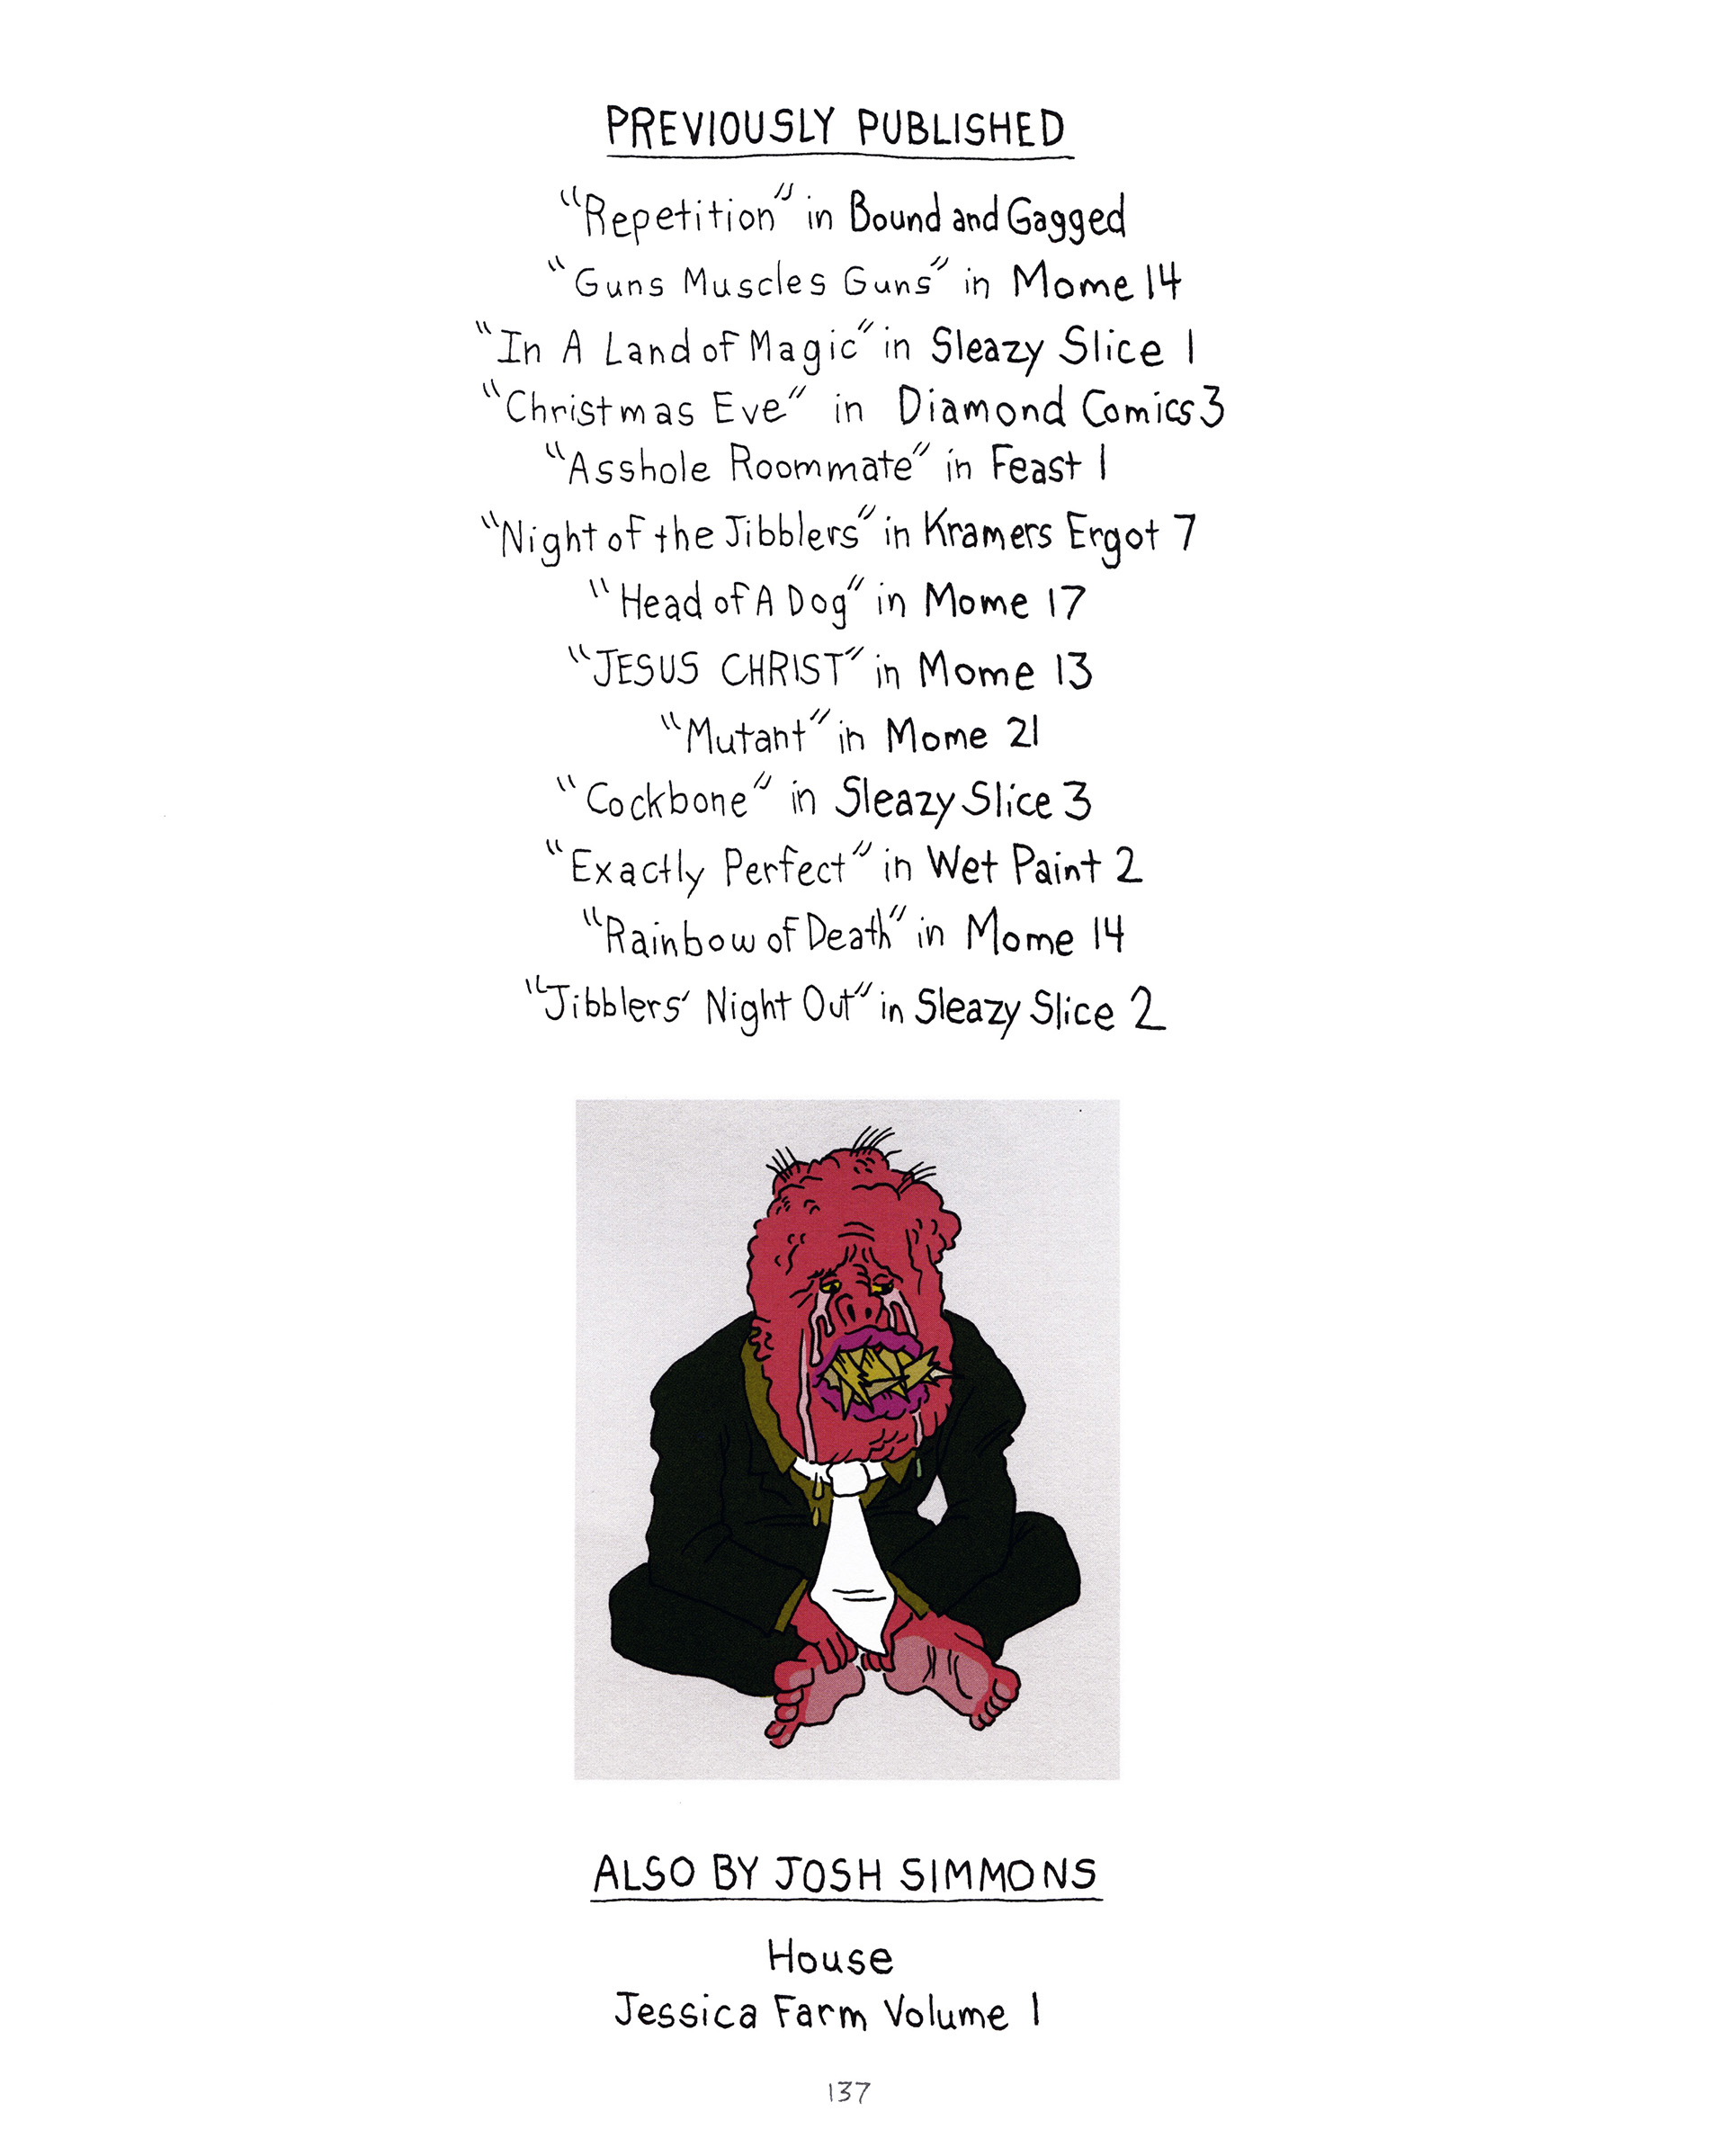 PREVIOUSLY PUBLISHED
"Repetition" in Bound and Gagged
"Guns Muscles Guns" in Mome 14
"In A Land of Magic" in Sleazy Slice 1
"Christmas Eve" in Diamond Comics 3
"Asshole Roommate" in Feast 1
"Night of the Jibblers" in Kramers Ergot 7
"Head of A Dog" in Mome 17
"JESUS CHRIST" in Mome 13
"Mutant" in Mome 21
"Cockbone" in Sleazy Slice 3
"Exactly Perfect" in Wet Paint 2
"Rainbow of Death" in Mome 14
"Jibblers' Night Out" in Sleazy Slice 2
ALSO BY JOSH SIMMONS
House
Jessica Farm Volume 1
137